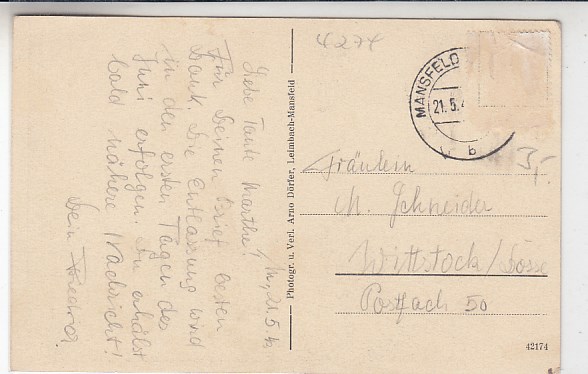 M., 21.5.42
Liebe Tante Marthe!
Für Deinen Brief besten
Dank. Die Entlassung wird
in den ersten Tagen des
Juni erfolgen. Du erhälst
bald nähere Nachricht!
Dein
Photogr. u. Verl. Arno Dörfer, Leimbach-Mansfeld
4274
MANSFELD
21.5.4
b
3,-
Fräulein
M. Schneider
Wittstock/Dosse
Postfach 50
42174